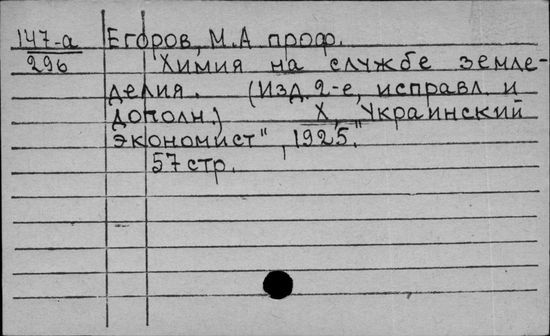 147-а Егоров, М.А проф.
296 Химия на службе земле-
делия. (Изд. 2-е, исправл. и
дополн.) Х, "Украинский
экономист", 1925.
57 стр.